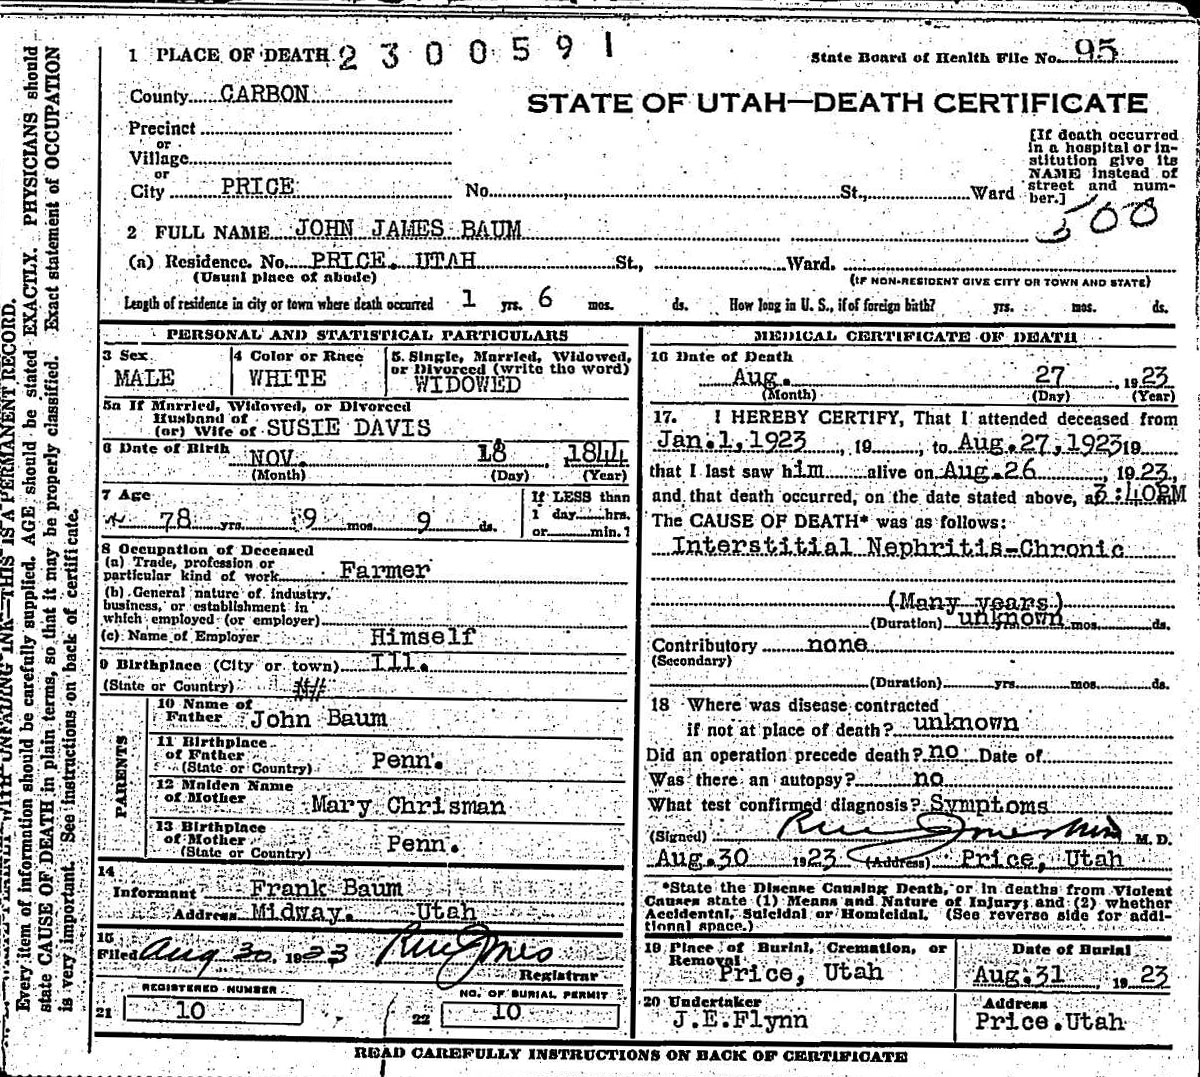 1 PLACE OF DEATH 2300591
State Board of Health File No. 95
County CARBON
STATE OF UTAH—DEATH CERTIFICATE
Precinct
or
Village
or
City PRICE No. St., Ward
[If death occurred
in a hospital or in-
stitution give its
NAME instead of
street and num-
ber.]
500
2 FULL NAME JOHN JAMES BAUM
(a) Residence. No. PRICE. UTAH St., Ward.
(Usual place of abode)
(IF NON-RESIDENT GIVE CITY OR TOWN AND STATE)
Length of residence in city or town where death occurred 1 yrs. 6 mos. ds. How long in U. S., if of foreign birth? yrs. mos. ds.
PERSONAL AND STATISTICAL PARTICULARS
3 Sex
MALE
4 Color or Race
WHITE
5. Single, Married, Widowed,
or Divorced (write the word)
WIDOWED
5a If Married, Widowed, or Divorced
Husband of
(or) Wife of SUSIE DAVIS
6 Date of Birth NOV. 18, 1844
(Month) (Day) (Year)
7 Age
78 yrs. 9 mos. 9 ds.
If LESS than
1 day hrs.
or min.?
8 Occupation of Deceased
(a) Trade, profession or
particular kind of work Farmer
(b) General nature of industry,
business, or establishment in
which employed (or employer)
(c) Name of Employer Himself
9 Birthplace (City or town) Ill.
(State or Country)
PARENTS
10 Name of
Father John Baum
11 Birthplace
of Father
(State or Country) Penn.
12 Maiden Name
of Mother Mary Chrisman
13 Birthplace
of Mother
(State or Country) Penn.
14
Informant Frank Baum
Address Midway. Utah
15
Filed Aug 30. 1923
Registrar
REGISTERED NUMBER
21 10
NO. OF BURIAL PERMIT
22 10
MEDICAL CERTIFICATE OF DEATH
16 Date of Death
Aug. 27, 1923
(Month) (Day) (Year)
17. I HEREBY CERTIFY, That I attended deceased from
Jan.1,1923, 19, to Aug.27,1923 19
that I last saw him alive on Aug.26, 1923,
and that death occurred, on the date stated above, at 3:40PM
The CAUSE OF DEATH* was as follows:
Interstitial Nephritis-Chronic
(Many years)
(Duration) unknown yrs. mos. ds.
Contributory none
(Secondary)
(Duration) yrs. mos. ds.
18 Where was disease contracted
if not at place of death? unknown
Did an operation precede death? no Date of
Was there an autopsy? no
What test confirmed diagnosis? Symptoms
(Signed) M. D.
Aug.30 1923 (Address) Price, Utah
*State the Disease Causing Death, or in deaths from Violent
Causes state (1) Means and Nature of Injury; and (2) whether
Accidental, Suicidal or Homicidal. (See reverse side for addi-
tional space.)
19 Place of Burial, Cremation, or
Removal
Price, Utah
Date of Burial
Aug.31, 1923
20 Undertaker
J.E.Flynn
Address
Price.Utah
READ CAREFULLY INSTRUCTIONS ON BACK OF CERTIFICATE
WITH UNFADING INK—THIS IS A PERMANENT RECORD.
Every item of information should be carefully supplied. AGE should be stated EXACTLY. PHYSICIANS should
state CAUSE OF DEATH in plain terms, so that it may be properly classified. Exact statement of OCCUPATION
is very important. See instructions on back of certificate.